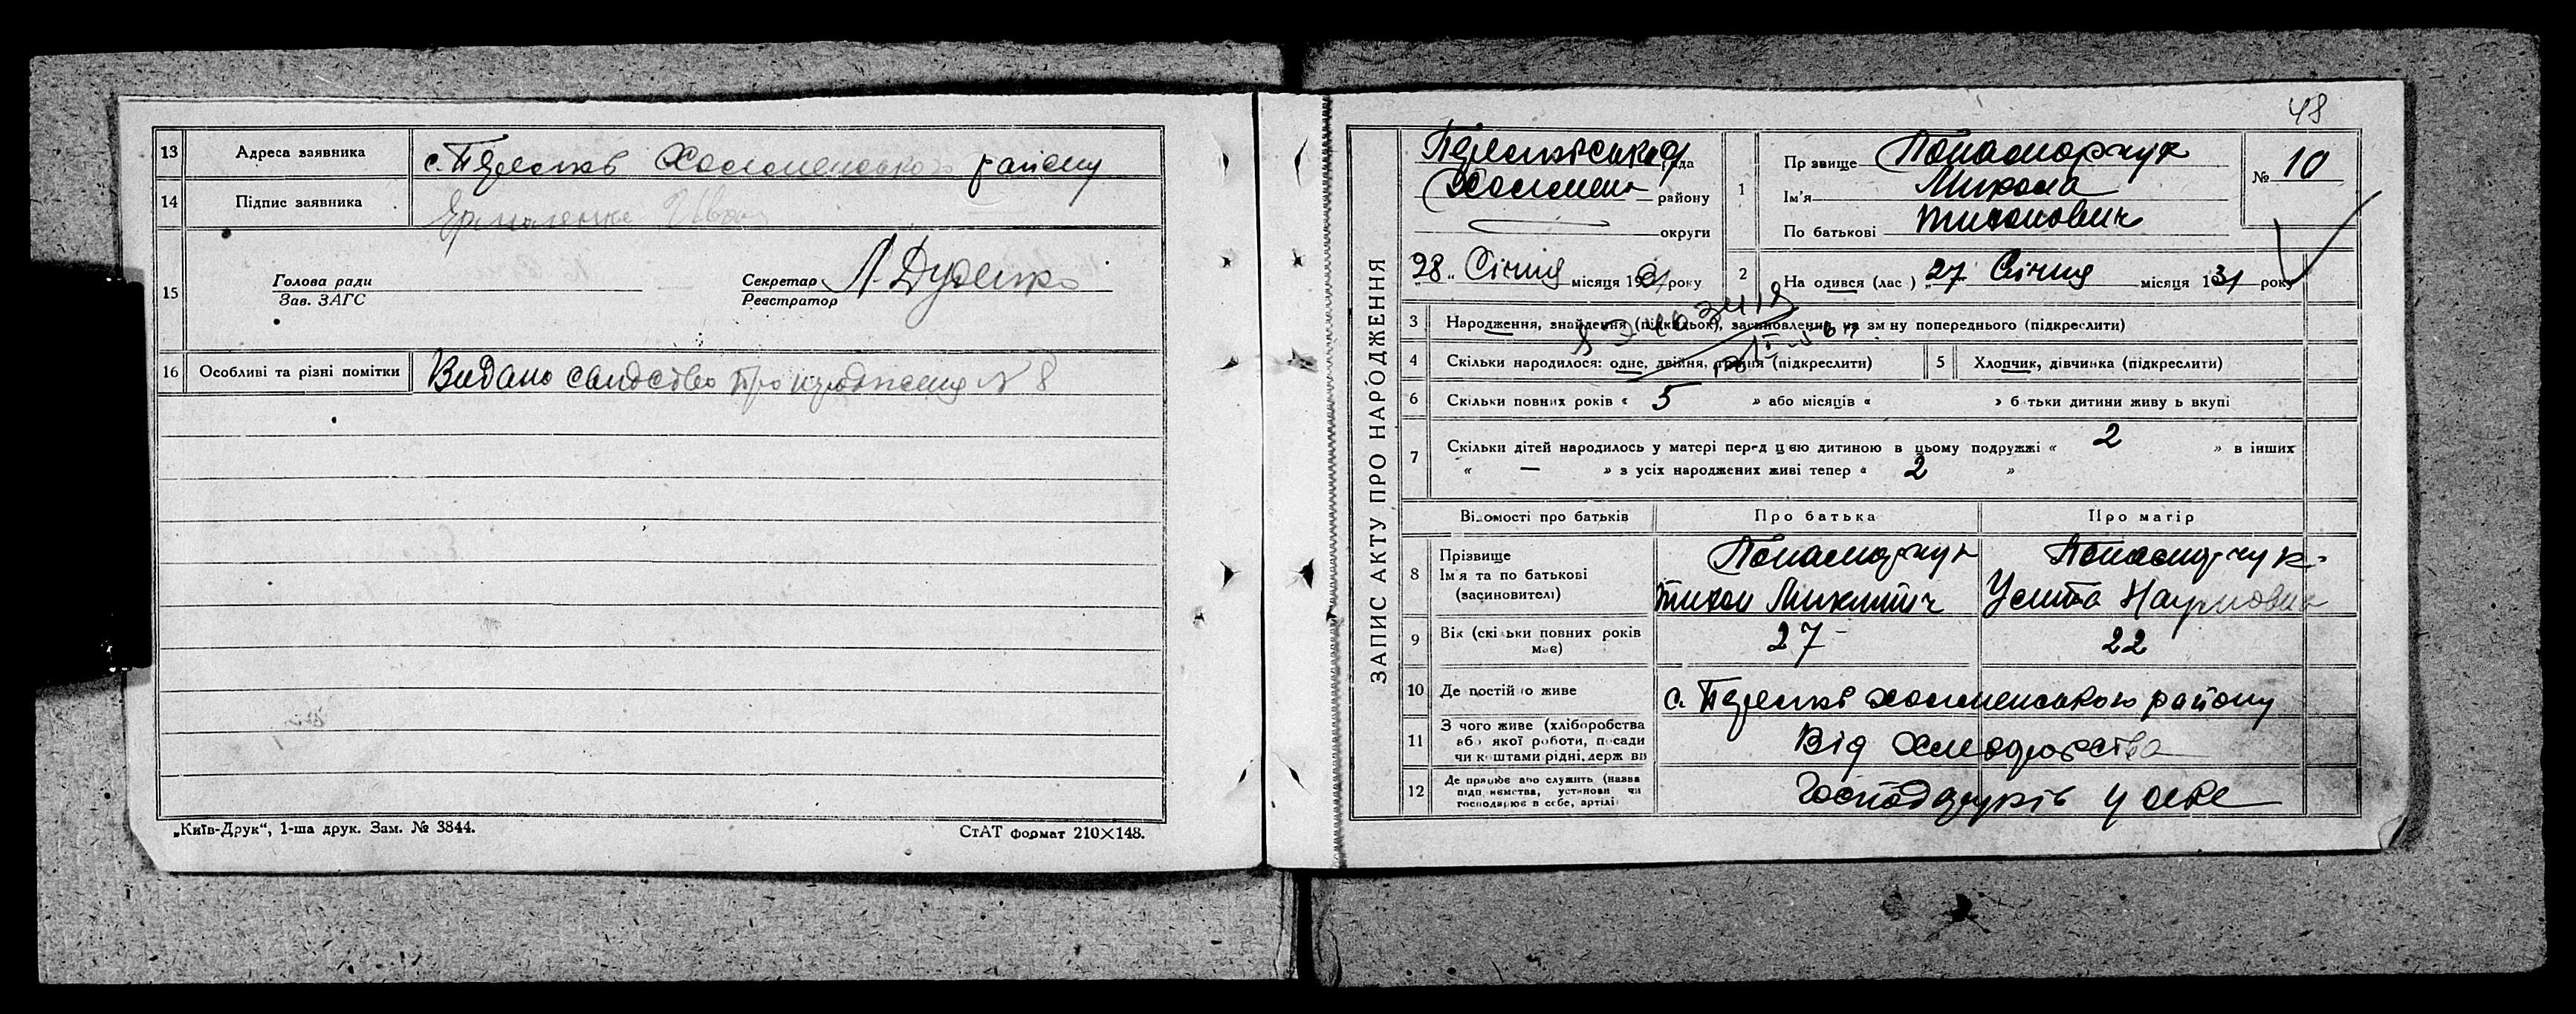 13 Адреса заявника с. Підлипів Холменського району
14 Підпис заявника Ярмоленко Іван
15 Голова ради Секретар Л. Дуденко
Зав. ЗАГС Реєстратор
16 Особливі та різні помітки Видано свидоство про народження № 8
„Київ-Друк“, 1-ша друк. Зам. № 3844. СтАТ формат 210×148.
48
ЗАПИС АКТУ ПРО НАРОДЖЕННЯ
рада
Холмен району
округи
„28„ Січня місяця 1931 року
1 Пр звище Понаморчук
Ім'я Микола
По батькові Тихонович
№ 10
2 На одився (лас ) „27„ Січня місяця 1931 року
3 Народження, знайдення (підкидьок), засиновлення, на зм ну попереднього (підкреслити)
4 Скільки народилося: одне, двійня, трійня (підкреслити) 5 Хлопчик, дівчинка (підкреслити)
6 Скільки повних років « 5 » або місяців « » б тьки дитини живу ь вкупі
7 Скільки дітей народилось у матері перед цією дитиною в цьому подружжі « 2 » в інших
« — » з усіх народжених живі тепер « 2 »
Відомості про батьків Про батька Про матір
8 Прізвище Понаморчук Понаморчук
Ім'я та по батькові
(засиновителі) Тихон Микитич Устина Наумовна
9 Вік (скільки повних років має) 27 22
10 Де постійно живе с. Підлипів холменського району
11 З чого живе (хліборобства
або якої роботи, посади
чи коштами рідні, держ ви Від
12 Де працює або служить (назва
підп иємства, установи чи
господарює в себе, артілі) у себе